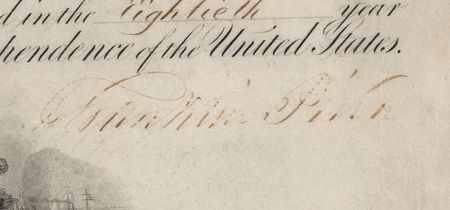 d in the Eightieth year
pendence of the United States.
Franklin Pierce